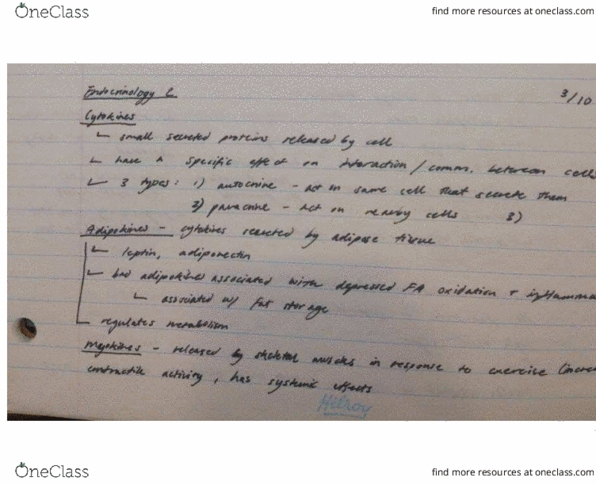 OneClass
find more resources at oneclass.com
Endocrinology 2
3/10
Cytokines
small secreted proteins released by cell
have a specific effect on interaction/comm. between cells
3 types: 1) autocrine - act on same cell that secrete them
2) paracrine - act on nearby cells 3)
Adipokines - cytokines secreted by adipose tissue
leptin, adiponectin
bad adipokines associated with depressed FA oxidation + inflamma
associated w/ fat storage
regulates metabolism
Myokines - released by skeletal muscles in response to exercise
contractile activity, has systemic effects
Hilroy
OneClass
find more resources at oneclass.com